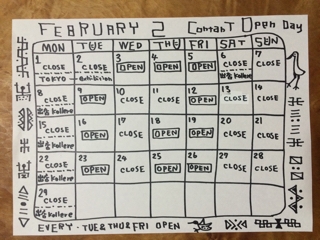 FEBRUARY 2 Contact Open Day
MON TUE WED THU FRI SAT SUN
1 2 3 4 5 6 7
CLOSE CLOSE OPEN OPEN OPEN CLOSE CLOSE
TOKYO exhibition 出会 Kollere
8 9 10 11 12 13 14
CLOSE OPEN CLOSE CLOSE OPEN CLOSE CLOSE
出会 Kollere
15 16 17 18 19 20 21
CLOSE OPEN CLOSE OPEN OPEN CLOSE CLOSE
出会 Kollere
22 23 24 25 26 27 28
CLOSE OPEN CLOSE OPEN OPEN CLOSE CLOSE
出会 Kollere
29
CLOSE
出会 Kollere
EVERY · TUE & THU & FRI OPEN